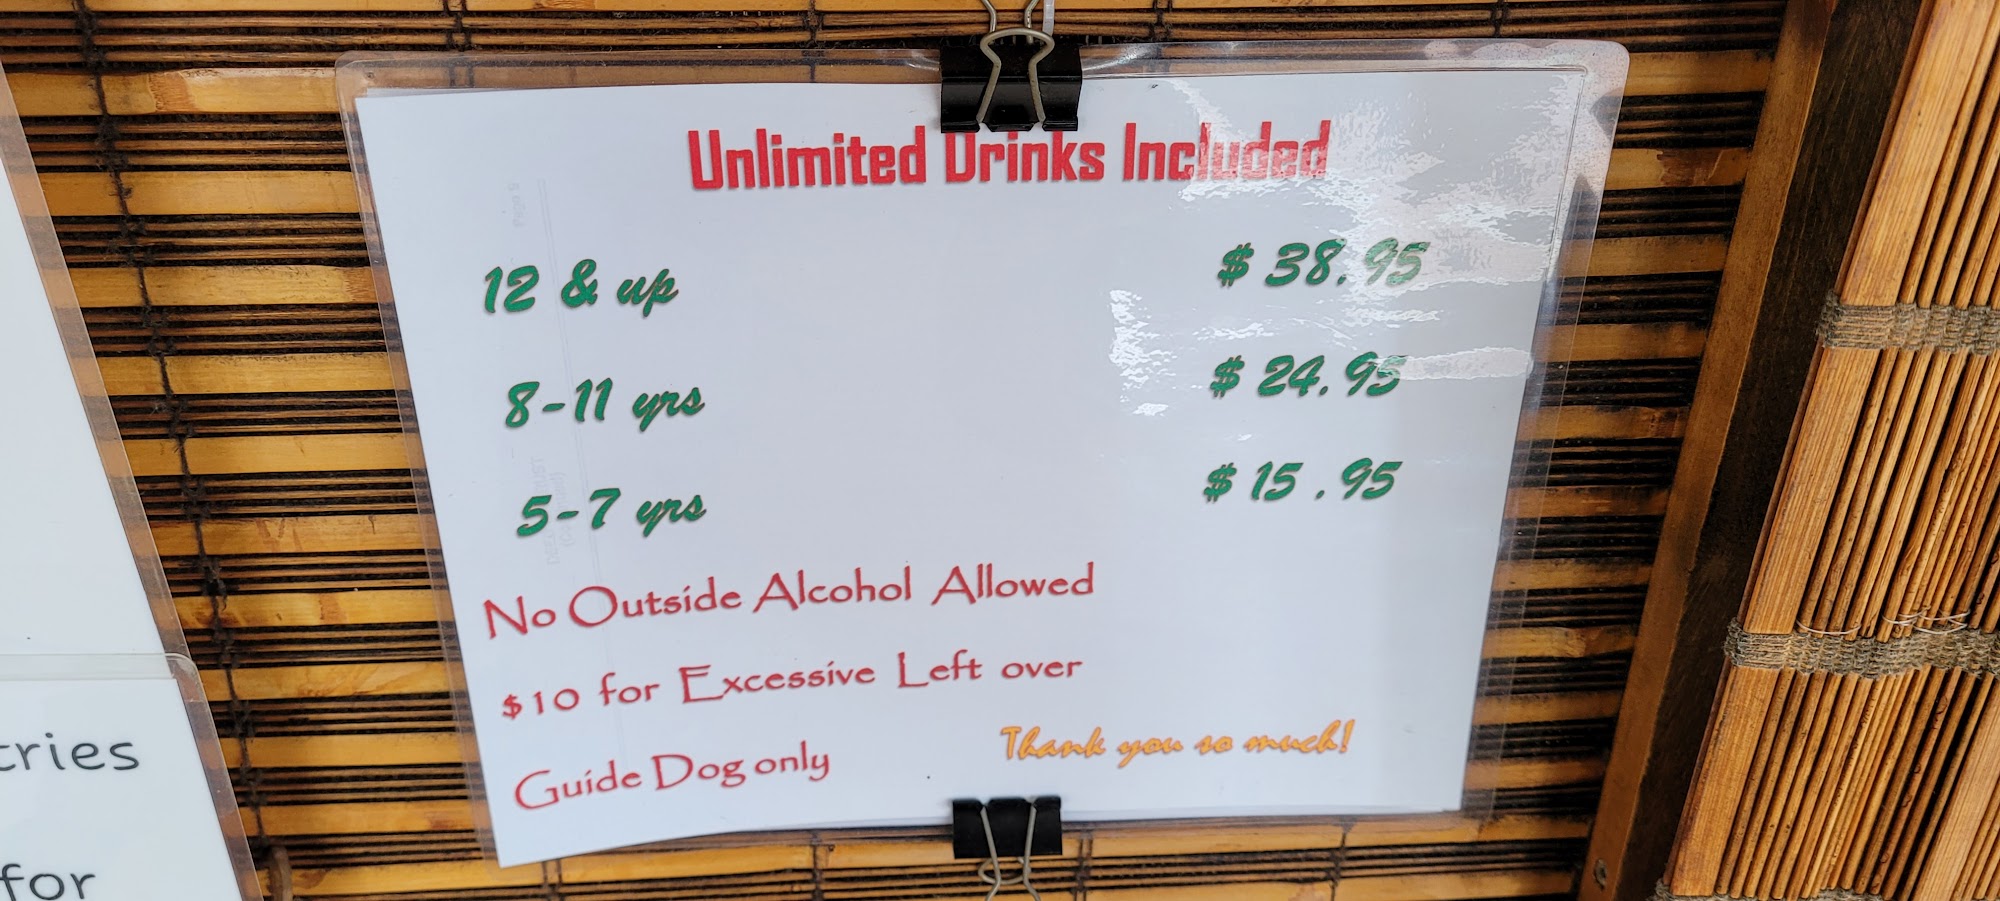 Unlimited Drinks Included
12 & up $ 38.95
8-11 yrs $ 24.95
5-7 yrs $ 15 .95
No Outside Alcohol Allowed
$10 for Excessive Left over
Guide Dog only
Thank you so much!
tries
for